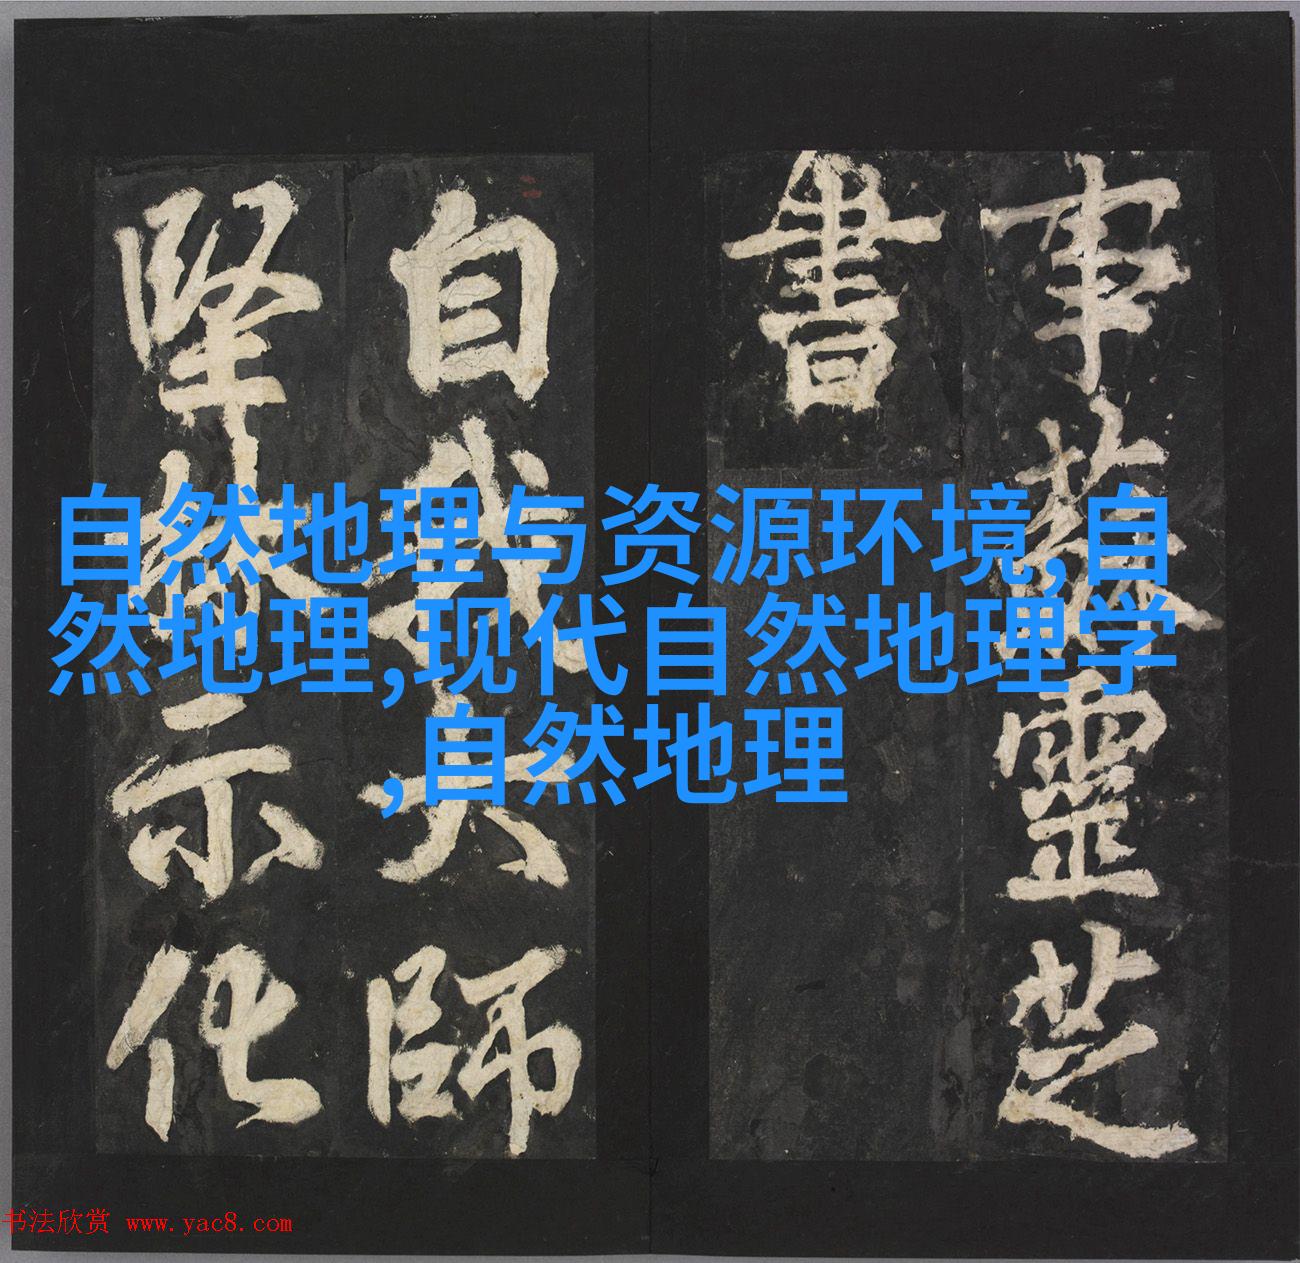 事蘇靈芝
書
自我大師
堅示化
自然地理与资源环境,自
然地理,现代自然地理学
,自然地理
书法欣赏 www.yac8.com